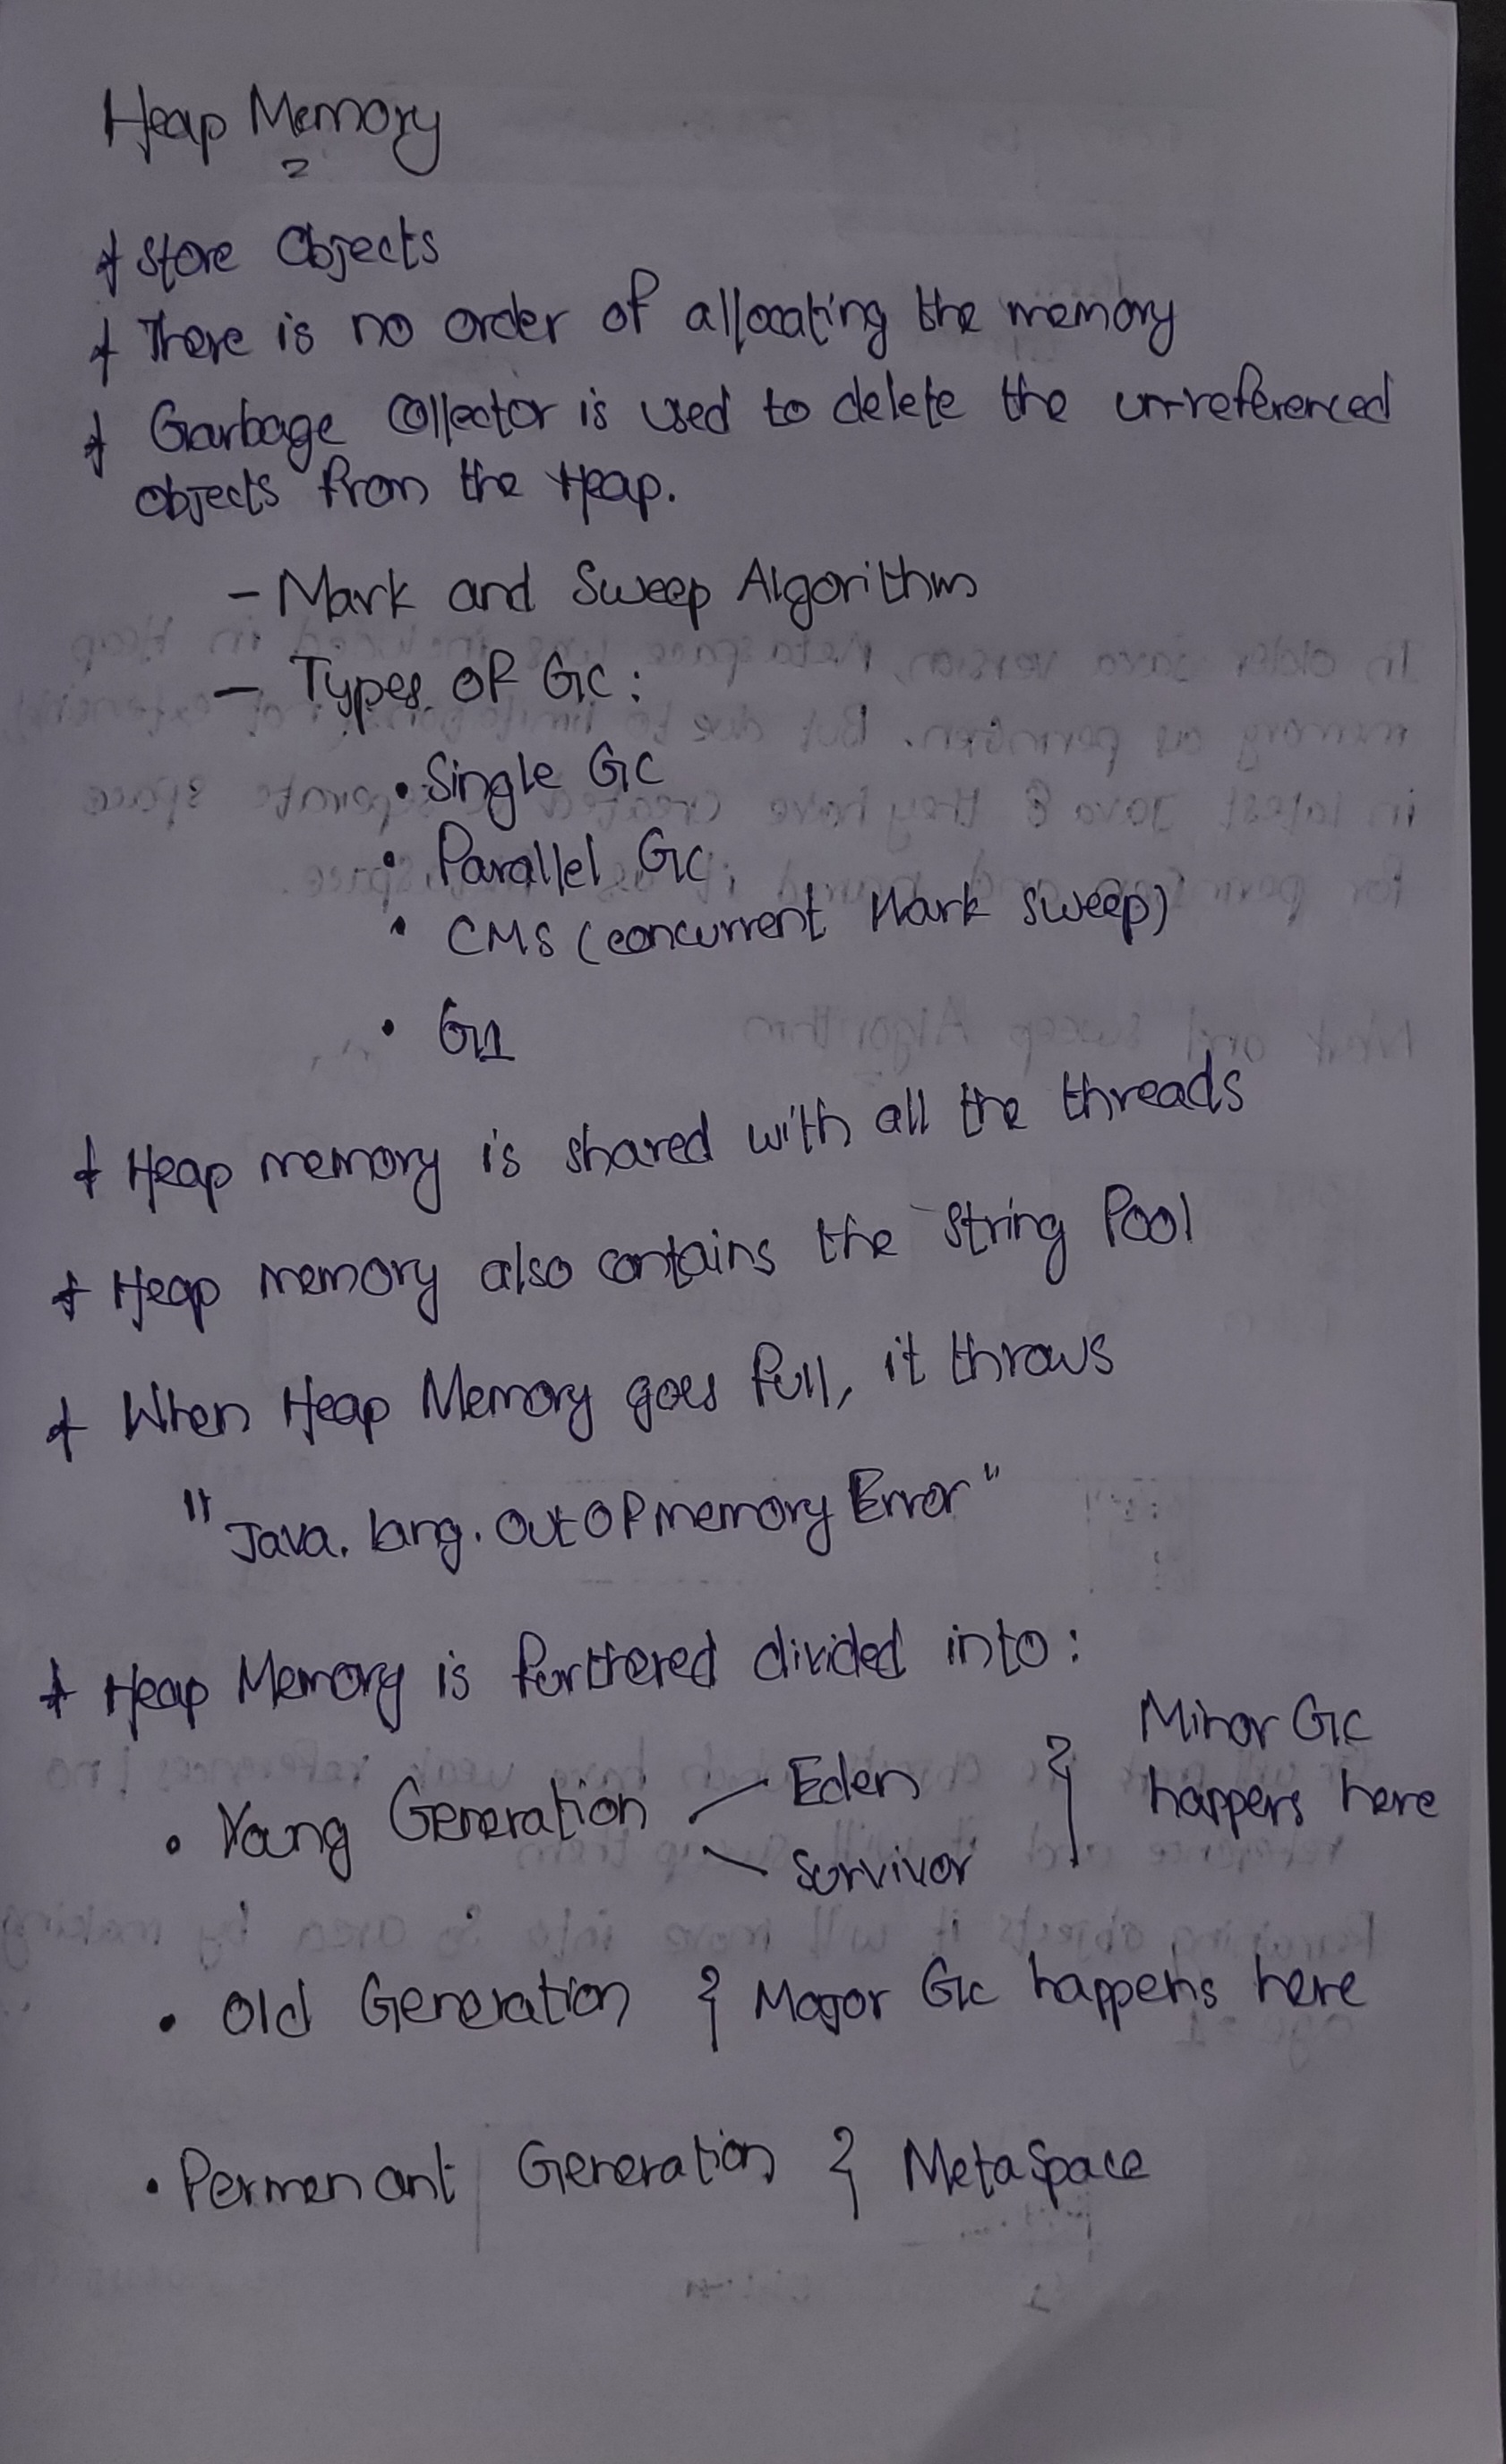 Heap Memory
* Store Objects
* There is no order of allocating the memory
* Garbage Collector is used to delete the un-referenced
objects from the Heap.
- Mark and Sweep Algorithm
- Types of GC :
• Single GC
• Parallel GC
• CMS (concurrent Mark Sweep)
• G1
* Heap memory is shared with all the threads
* Heap memory also contains the String Pool
* When Heap Memory goes full, it throws
"Java.lang.OutOfMemoryError"
* Heap Memory is furthered divided into :
• Young Generation Eden Survivor } Minor GC happens here
• Old Generation } Major GC happens here
• Permenant Generation } MetaSpace